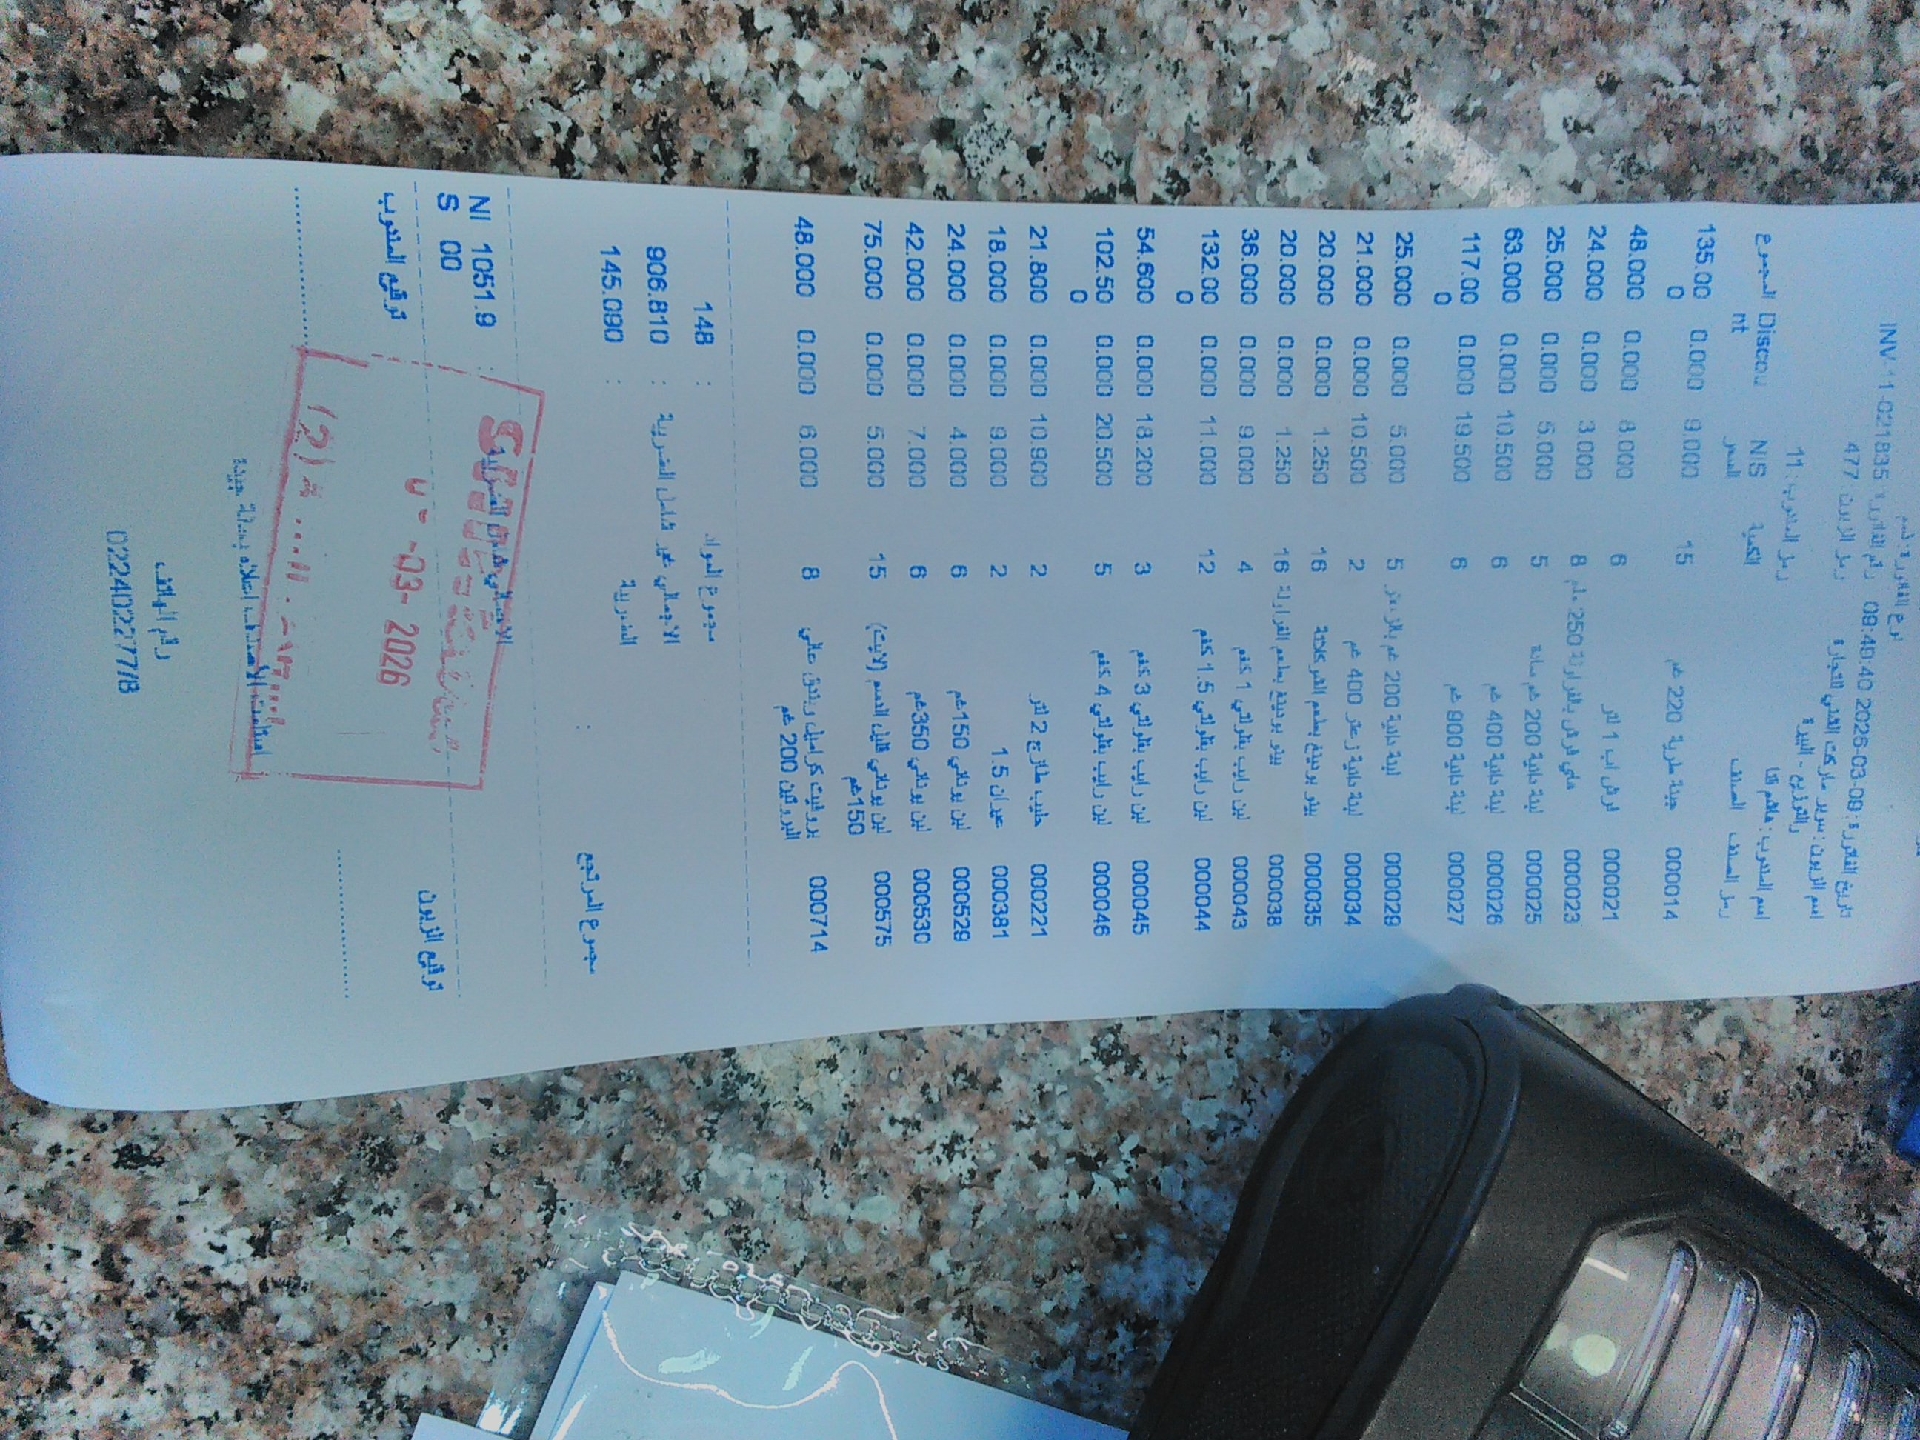 نوع الفاتورة:
INV-11-021835 رقم الفاتورة:
تاريخ الفاتورة: 2026-03-09 08:49:40 رمز الزبون: 477
اسم الزبون: سوبر ماركت الغني للتجارة
والتوزيع - البيرة
اسم المندوب: رمز المندوب: 11
رمز الصنف الصنف الكمية السعر NIS Discount المجموع
000014 جبنة طرية 220 غم 15 9.000 0.000 135.000
000021 فرش اب 1 لتر 6 8.000 0.000 48.000
000023 250 ملم 8 3.000 0.000 24.000
000025 لبنة دانية 200 غم سادة 5 5.000 0.000 25.000
000026 لبنة دانية 400 غم 6 10.500 0.000 63.000
000027 لبنة دانية 900 غم 6 19.500 0.000 117.000
000029 لبنة دانية 200 غم بالزعتر 5 5.000 0.000 25.000
000034 لبنة دانية زعتر 400 غم 2 10.500 0.000 21.000
000035 بيتو بودينغ بطعم الشوكلاتة 16 1.250 0.000 20.000
000038 بيتو بودينغ بطعم الفراولة 16 1.250 0.000 20.000
000043 لبن رايب بقولتي 1 كغم 4 9.000 0.000 36.000
000044 لبن رايب بقولتي 1.5 كغم 12 11.000 0.000 132.000
000045 لبن رايب بقولتي 3 كغم 3 18.200 0.000 54.600
000046 لبن رايب بقولتي 4 كغم 5 20.500 0.000 102.500
000221 حليب طازج 2 لتر 2 10.900 0.000 21.800
000381 عيران 1.5 2 9.000 0.000 18.000
000529 لبن يوناني 150غم 6 4.000 0.000 24.000
000530 لبن يوناني 350غم 6 7.000 0.000 42.000
000575 لبن يوناني قليل الدسم (لايت) 150غم 15 5.000 0.000 75.000
000714 بروفيت كراميل وبندق عالي البروتين 200 غم 8 6.000 0.000 48.000
مجموع المواد : 148
الاجمالي غير شامل الضريبة : 906.810
الضريبة : 145.090
مجموع المرتجع :
الاجمالي شامل الضريبة : NIS 1051.900
توقيع الزبون توقيع المندوب
-03- 2026
استلمت الأصناف اعلاه بحالة جيدة
رقم الهاتف
022402277/8